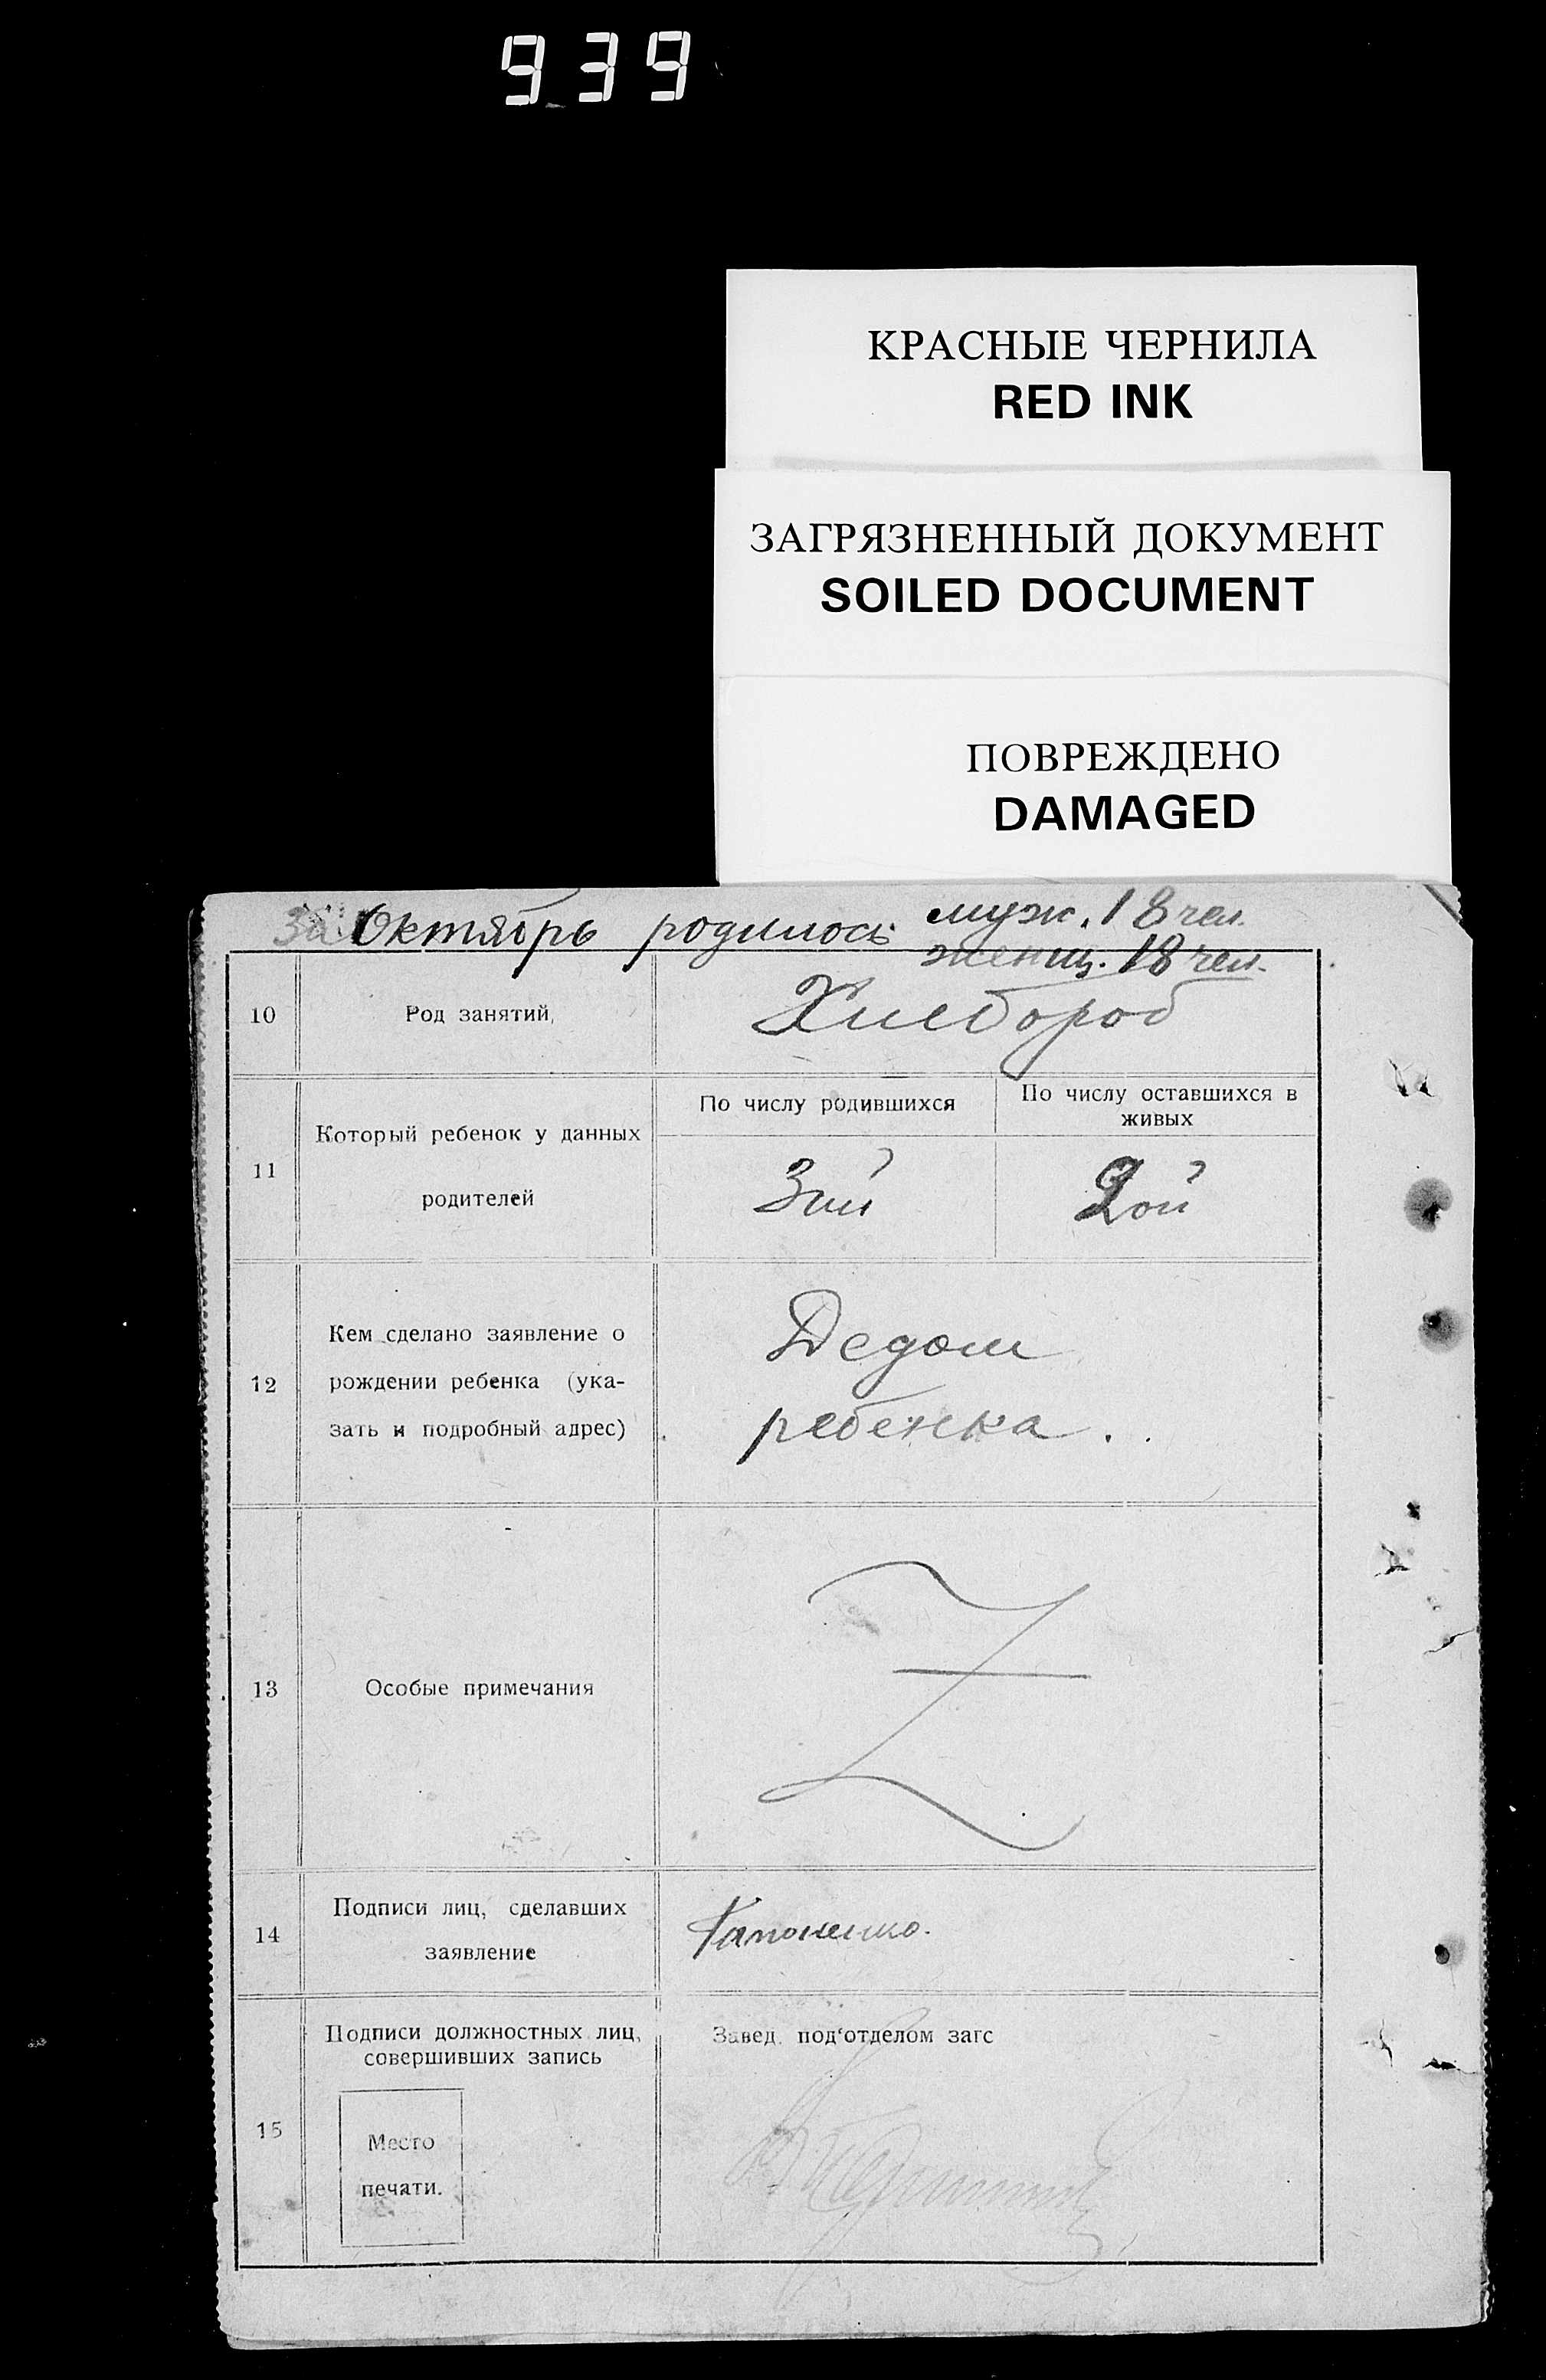 939
КРАСНЫЕ ЧЕРНИЛА
RED INK
ЗАГРЯЗНЕННЫЙ ДОКУМЕНТ
SOILED DOCUMENT
ПОВРЕЖДЕНО
DAMAGED
За Октябрь родилось муж. 18 чел.
женщ. 18 чел.
10 Род занятий, Хлебороб
11 Который ребенок у данных
родителей
По числу родившихся
3ий
По числу оставшихся в
живых
2ой
12 Кем сделано заявление о
рождении ребенка (ука-
зать и подробный адрес)
Дедом
ребенка.
13 Особые примечания
Z
14 Подписи лиц, сделавших
заявление
Гапоненко.
15 Подписи должностных лиц,
совершивших запись
Место
печати.
Завед. под'отделом загс